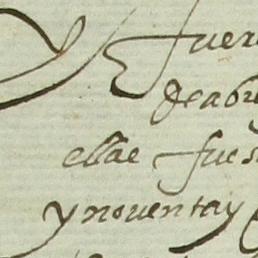 fuer
de abr
ellae fues
y noventa y